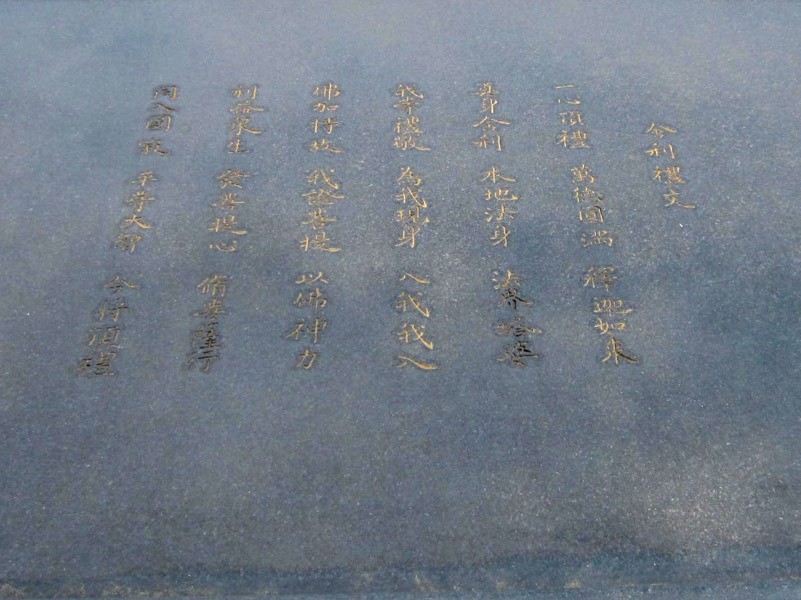 舍利禮文
一心頂禮 萬德圓滿 釋迦如來
真身舍利 本地法身 法界塔婆
我等禮敬 為我現身 入我我入
佛加持故 我證菩提 以佛神力
利益衆生 發菩提心 修菩薩行
同入圓寂 平等大智 今將頂禮